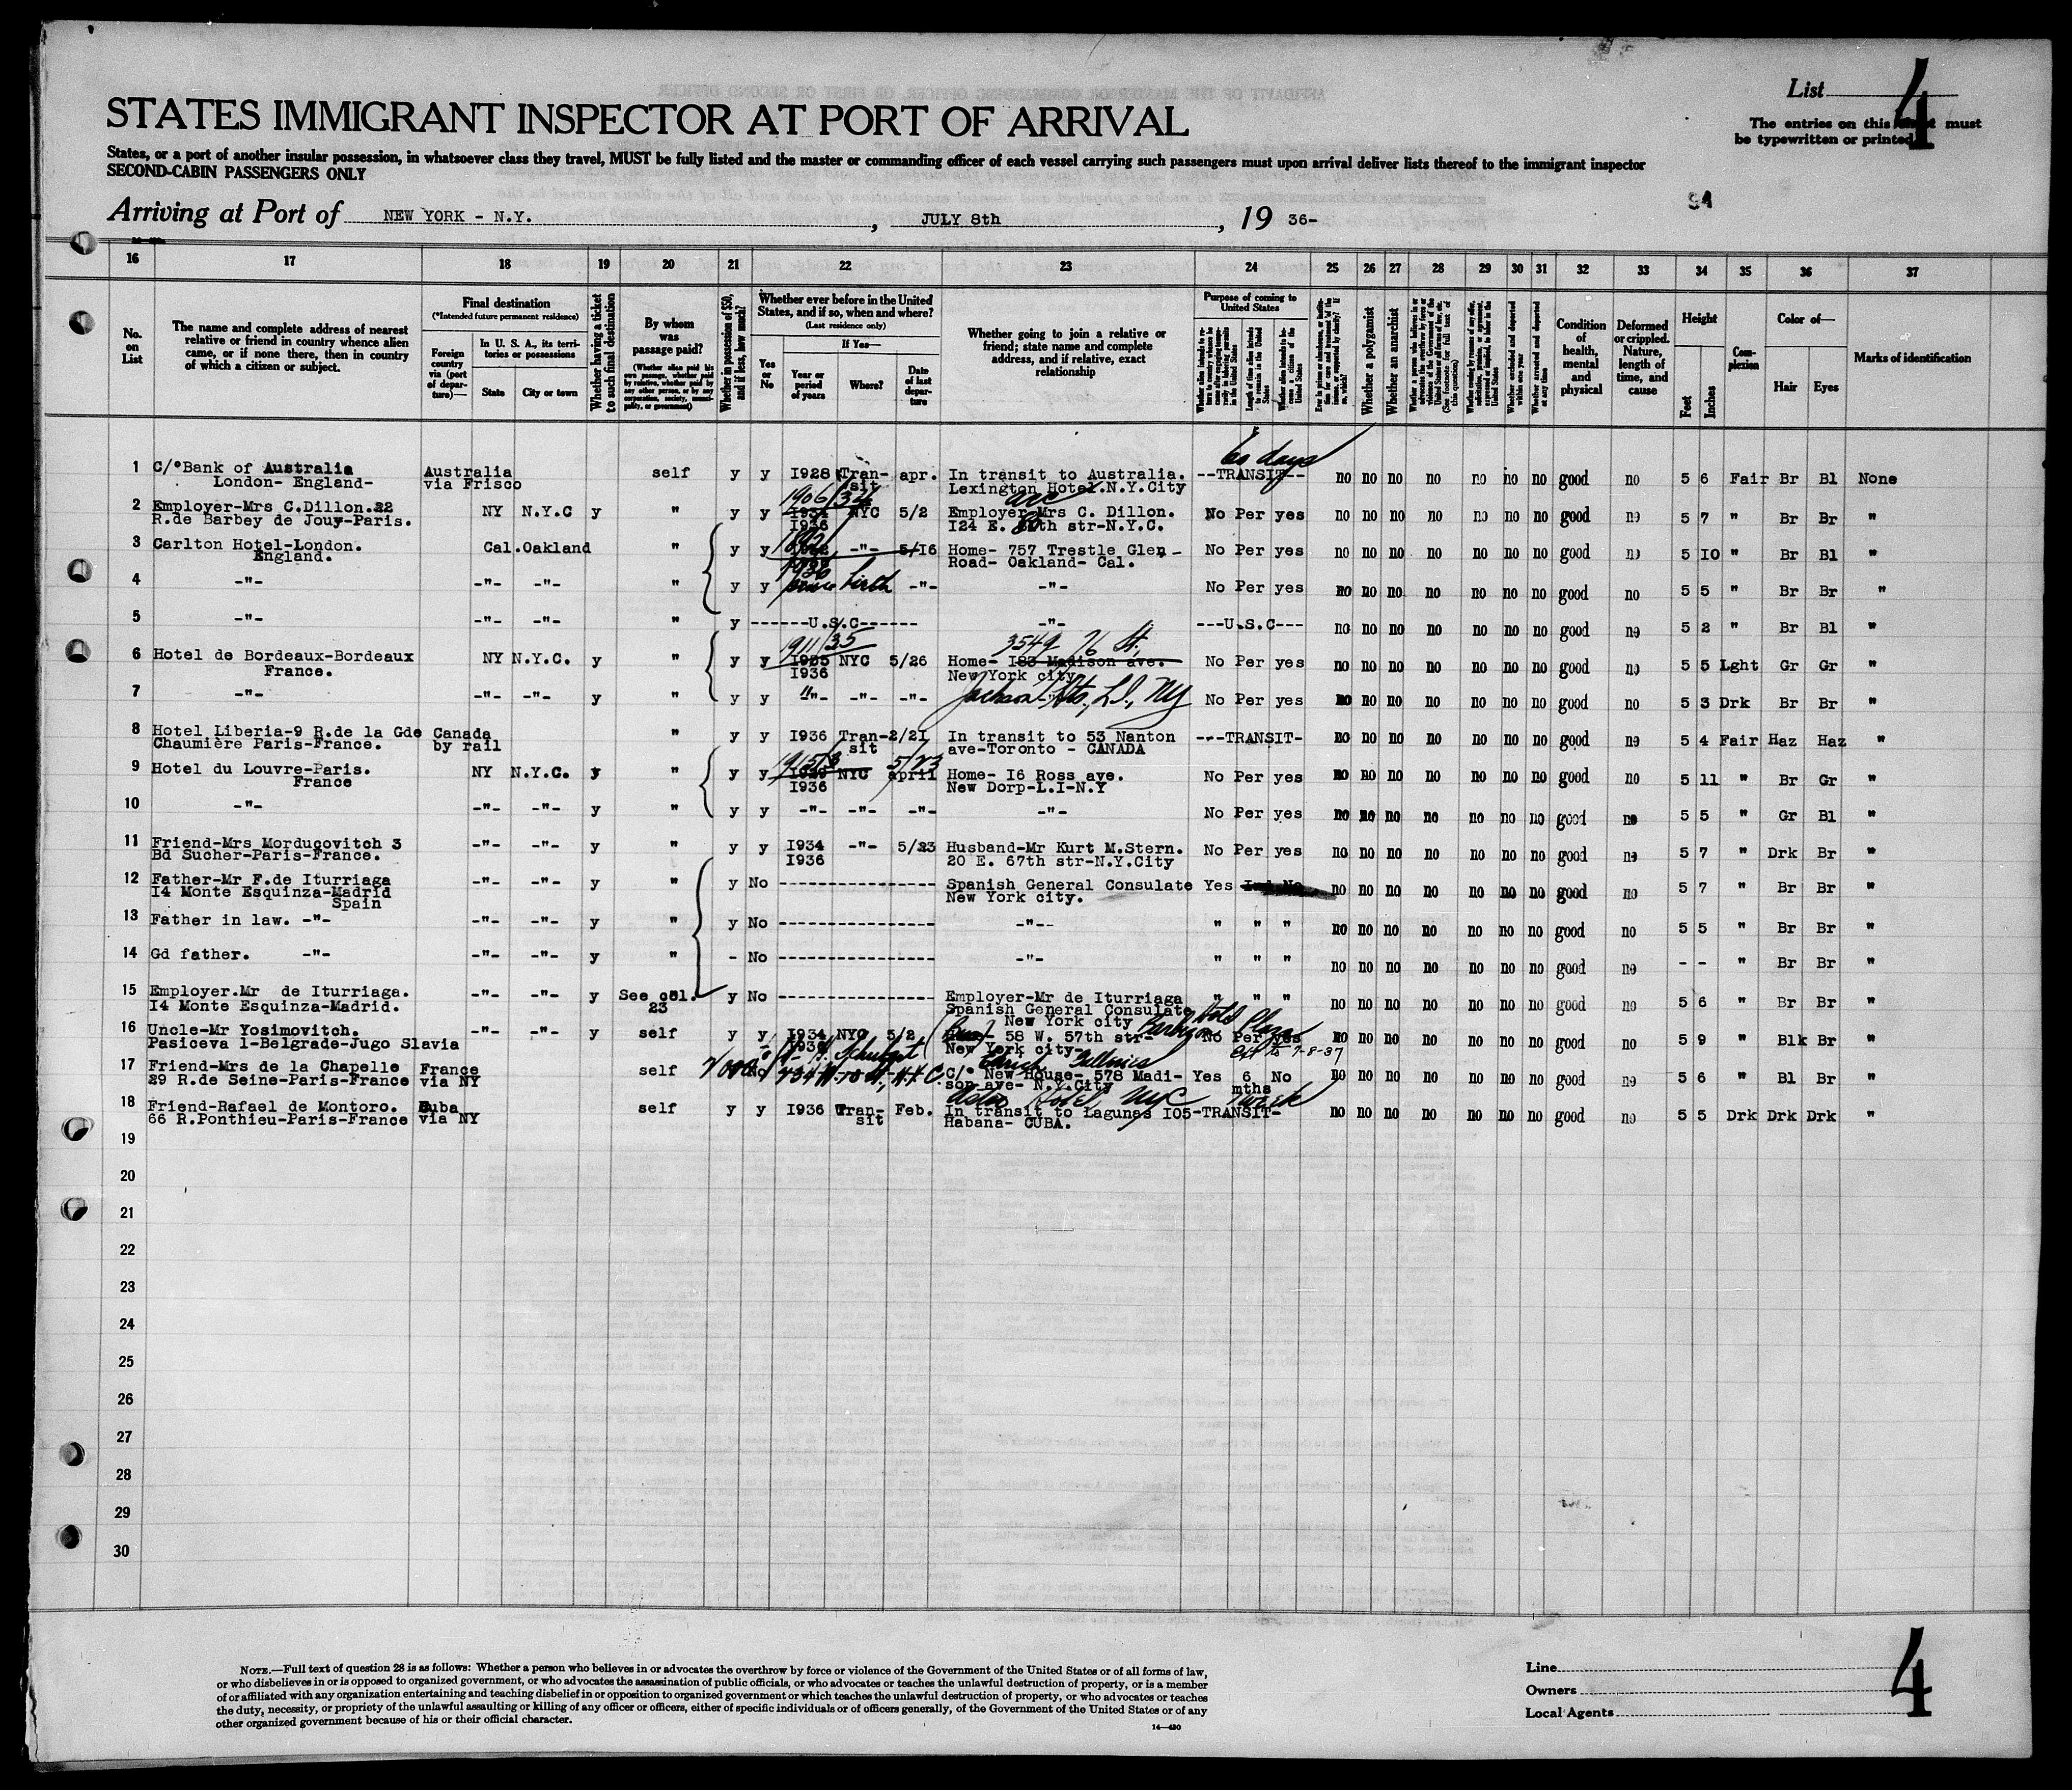 List 4
STATES IMMIGRANT INSPECTOR AT PORT OF ARRIVAL
The entries on this sheet must
be typewritten or printed.
States, or a port of another insular possession, in whatsoever class they travel, MUST be fully listed and the master or commanding officer of each vessel carrying such passengers must upon arrival deliver lists thereof to the immigrant inspector
SECOND-CABIN PASSENGERS ONLY
Arriving at Port of NEW YORK - N.Y. , JULY 8th , 19 36-
16 17 18 19 20 21 22 23 24 25 26 27 28 29 30 31 32 33 34 35 36 37
No. on List
The name and complete address of nearest relative or friend in country whence alien came, or if none there, then in country of which a citizen or subject.
Final destination
(*Intended future permanent residence)
Foreign country via (port of departure)—
In U. S. A., its territories or possessions
State City or town
Whether having a ticket to such final destination
By whom was passage paid?
(Whether alien paid his own passage, whether paid by relative, whether paid by any other person, or by any corporation, society, municipality, or government)
Whether in possession of $50, and if less, how much?
Whether ever before in the United States, and if so, when and where?
(Last residence only)
Yes or No
If Yes—
Year or period of years Where? Date of last departure
Whether going to join a relative or friend; state name and complete address, and if relative, exact relationship
Purpose of coming to United States
Whether a polygamist
Whether an anarchist
Condition of health, mental and physical
Deformed or crippled. Nature, length of time, and cause
Height
Feet Inches
Complexion
Color of—
Hair Eyes
Marks of identification
60 days
1 C/°Bank of Australia Australia self y y I928 Tran- apr. In transit to Australia. --TRANSIT-- no no no no no no no good no 5 6 Fair Br Bl None
London- England- via Frisco sit Lexington Hotel.N.Y.City
1906/34 ave
2 Employer-Mrs C.Dillon.22 NY N.Y.C y " y y I934 NYC 5/2 Employer-Mrs C. Dillon. No Per yes no no no no no no no good no 5 7 " Br Br "
R.de Barbey de Jouy-Paris. I936 I24 E. 80th str-N.Y.C.
3 Carlton Hotel-London. Cal.Oakland " y y -"- 5/I6 Home- 757 Trestle Glen - No Per yes no no no no no no no good no 5 IO " Br Bl "
England. Road- Oakland- Cal.
4 -"- -"- -"- " y y since birth -"- -"- No Per yes no no no no no no no good no 5 5 " Br Br "
5 -"- -"- -"- " y ------U.S.C------ -"- ---U.S.C--- no no no no no no no good no 5 2 " Br Bl "
1911/35 3549 76 St.,
6 Hotel de Bordeaux-Bordeaux NY N.Y.C. y " y y I935 NYC 5/26 Home- I83 Madison ave. No Per yes no no no no no no no good no 5 5 Lght Gr Gr "
France. I936 New York city
7 -"- -"- -"- y " y y "- -"- -"- Jackson Hts., L.I., NY No Per yes no no no no no no no good no 5 3 Drk Br Br "
8 Hotel Liberia-9 R.de la Gde Canada " y y I936 Tran- 2/2I In transit to 53 Nanton ---TRANSIT- no no no no no no no good no 5 4 Fair Haz Haz "
Chaumière Paris-France. by rail sit ave-Toronto - CANADA
5/23
9 Hotel du Louvre-Paris. NY N.Y.C. y " y y I929 NYC april Home- I6 Ross ave. No Per yes no no no no no no no good no 5 11 " Br Gr "
France I936 New Dorp-L.I-N.Y
10 -"- -"- -"- y " y y -"- -"- -"- -"- No Per yes no no no no no no no good no 5 5 " Gr Bl "
11 Friend-Mrs Morducovitch 3 -"- -"- y " y y I934 -"- 5/23 Husband-Mr Kurt M.Stern. No Per yes no no no no no no no good no 5 7 " Drk Br "
Bd Sucher-Paris-France. I936 20 E. 67th str-N.Y.City
12 Father-Mr F.de Iturriaga -"- -"- y " y No ---------------- Spanish General Consulate Yes no no no no no no no good no 5 7 " Br Br "
I4 Monte Esquinza-Madrid New York city.
Spain
13 Father in law. -"- -"- -"- y " y No ---------------- -"-- " " " no no no no no no no good no 5 5 " Br Br "
14 Gd father. -"- -"- -"- y " - No ---------------- -"- " " " no no no no no no no good no - - " Br Br "
15 Employer.Mr de Iturriaga. -"- -"- y See col. y No ---------------- Employer-Mr de Iturriaga " " " no no no no no no no good no 5 6 " Br Br "
I4 Monte Esquinza-Madrid. 23 Spanish General Consulate
New York city
Barbizon Plaza Hotel
16 Uncle-Mr Yosimovitch. -"- -"- y self y y I934 NYC 5/2 58 W. 57th str- No Per yes no no no no no no no good no 5 9 " Blk Br "
Pasiceva 1-Belgrade-Jugo Slavia New York city-
7-8-37
Galleries
17 Friend-Mrs de la Chapelle France self C/° New House- 578 Madi- Yes 6 No no no no no no no no good no 5 6 " Bl Br "
29 R.de Seine-Paris-France via NY son ave- N.Y.City mths
Hotel NYC 1 week
18 Friend-Rafael de Montoro. Cuba self y y I936 Tran- Feb. In transit to Lagunas I05-TRANSIT- no no no no no no no good no 5 5 Drk Drk Drk "
66 R.Ponthieu-Paris-France via NY sit Habana- CUBA.
19
20
21
22
23
24
25
26
27
28
29
30
NOTE.—Full text of question 28 is as follows: Whether a person who believes in or advocates the overthrow by force or violence of the Government of the United States or of all forms of law,
or who disbelieves in or is opposed to organized government, or who advocates the assassination of public officials, or who advocates or teaches the unlawful destruction of property, or is a member
of or affiliated with any organization entertaining and teaching disbelief in or opposition to organized government or which teaches the unlawful destruction of property, or who advocates or teaches
the duty, necessity, or propriety of the unlawful assaulting or killing of any officer or officers, either of specific individuals or of officers generally, of the Government of the United States or of any
other organized government because of his or their official character.
14—430
Line
Owners
Local Agents
4